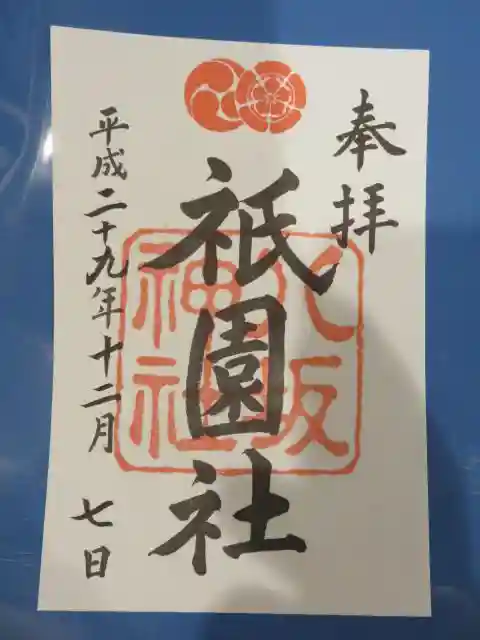 奉拝
祇園社
八坂
神社
平成二十九年十二月
七日